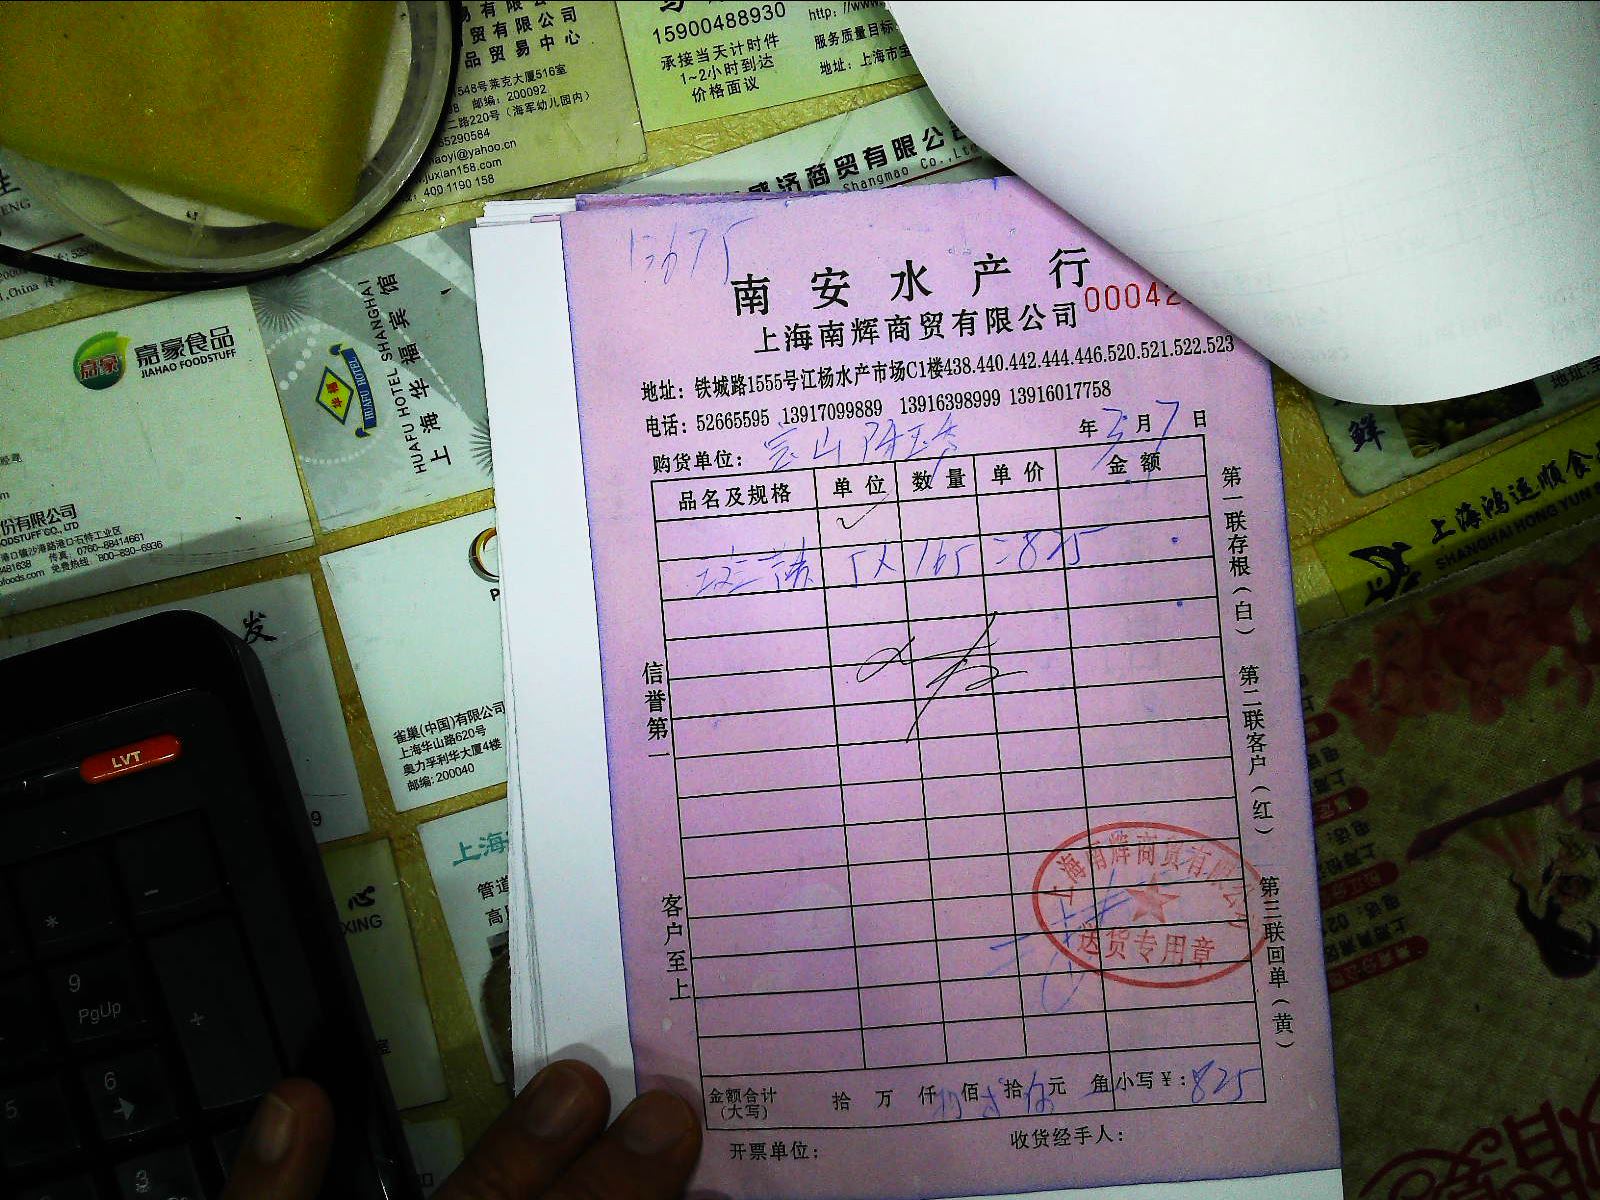 易有限公
贸有限公司
品贸易中心
548号莱克大厦516室
邮编：200092
二路220号（海军幼儿园内）
65290584
aoyi@yahoo.cn
.juxian158.com
400 1190 158
15900488930
承接当天计时件
1~2小时到达
价格面议
http://www.
服务质量目标
地址：上海市宝
济商贸有限公司
Shangmao Co.,Ltd
嘉豪
嘉豪食品
JIAHAO FOODSTUFF
份有限公司
ODSTUFF CO., LTD
港口镇沙港路港口石特工业区
传真：0760-88414661
免费热线：800-830-6936
HUAFU HOTEL
HUAFU HOTEL SHANGHAI
上海华福宾馆
发
雀巢(中国)有限公司
上海华山路620号
奥力孚利华大厦4楼
邮编：200040
上海
管道
心
XING
LVT
*
-
9
PgUp
+
5
6
3
南安水产行
上海南辉商贸有限公司
00042
地址：铁城路1555号江杨水产市场C1楼438.440.442.444.446.520.521.522.523
电话：52665595 13917099889 13916398999 13916017758
购货单位：宝山 年3月7日
品名及规格 单位 数量 单价 金额
165 =825
信誉第一
客户至上
第一联存根（白）
第二联客户（红）
第三联回单（黄）
上海南辉商贸有限公司
送货专用章
金额合计
(大写)
拾 万 仟 捌佰 贰拾 伍元 角 小写￥：825
开票单位：
收货经手人：
鲜
上海鸿运顺食
SHANGHAI HONG YUN